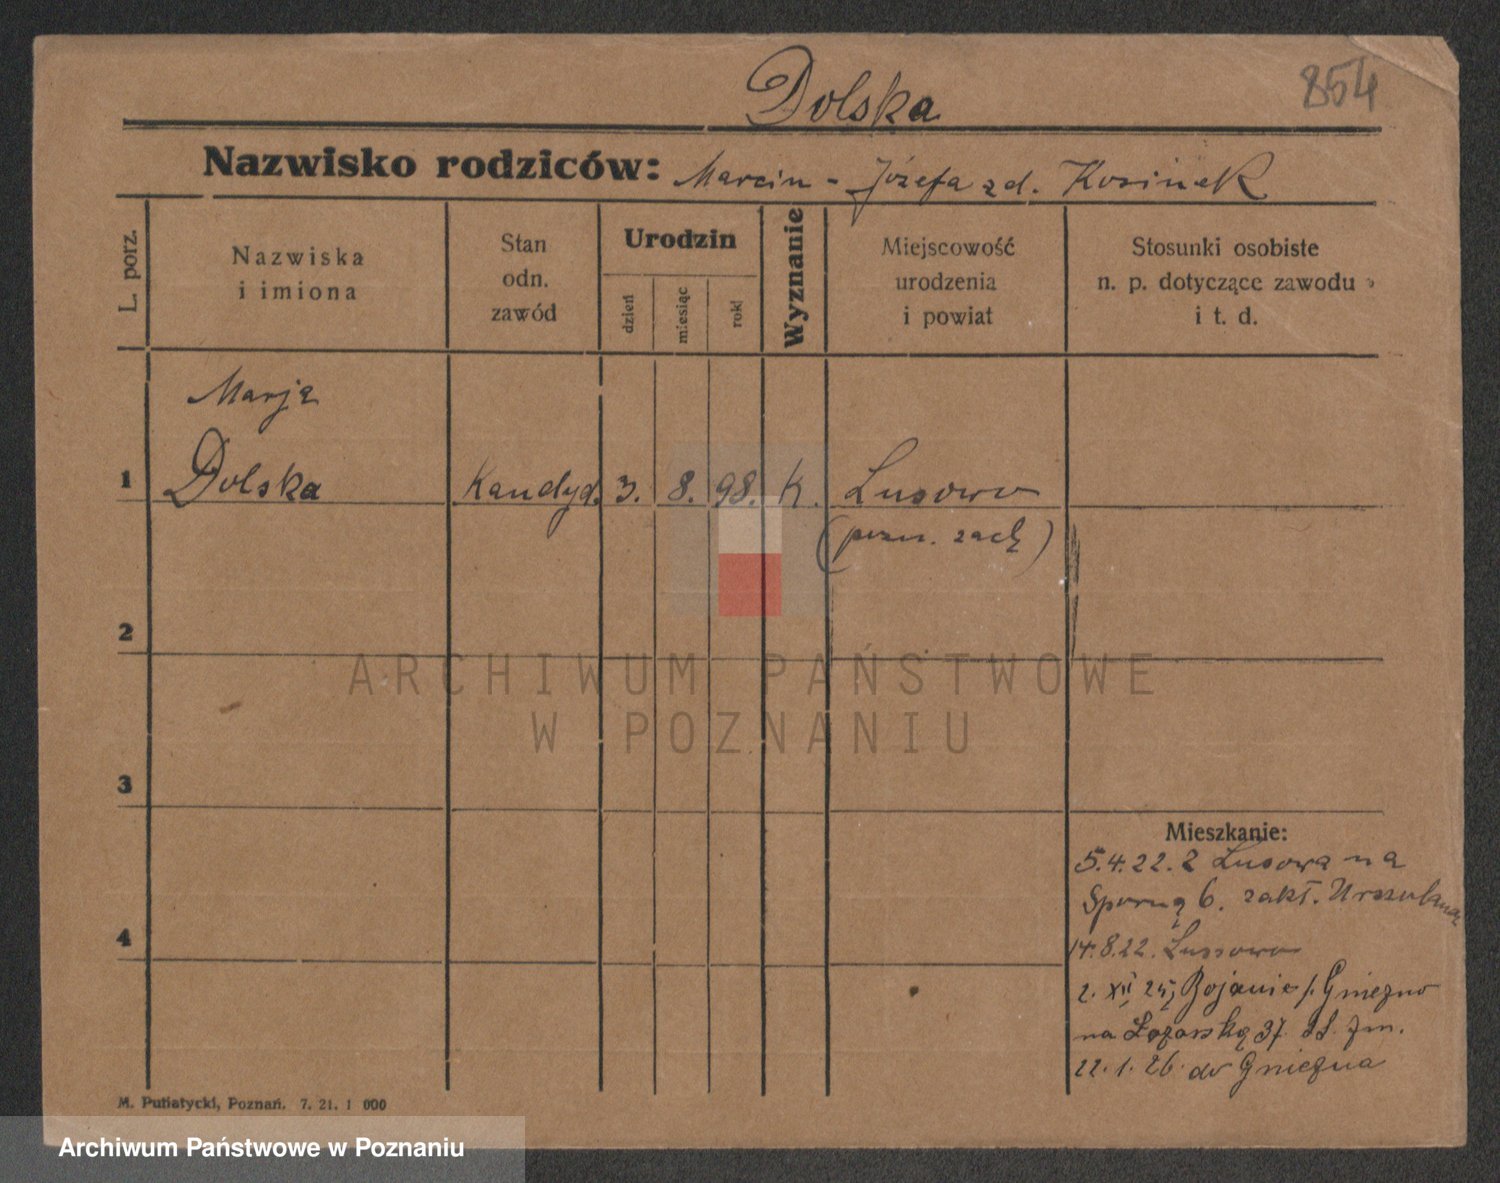 Dolska
854
Nazwisko rodziców: Marcin - Józefa zd. Kosinek
L. porz.
Nazwiska
i imiona
Stan
odn.
zawód
Urodzin
dzień
miesiąc
rok
Wyznanie
Miejscowość
urodzenia
i powiat
Stosunki osobiste
n. p. dotyczące zawodu
i t. d.
Marja
1 Dolska Kandyd. 3. 8. 98. K. Lusowo
(pozn. zach)
2
3
4
Mieszkanie:
5.4.22. z Lusowa na
Sporną 6. zakł.
14.8.22. Lussowo
2. XII 25, Bojanic /. Gniezno
na Łozarską 37
22. 1. 26. do Gniezna
M. Putiatycki, Poznań. 7. 21. 1 000
ARCHIWUM PAŃSTWOWE
W POZNANIU
Archiwum Państwowe w Poznaniu